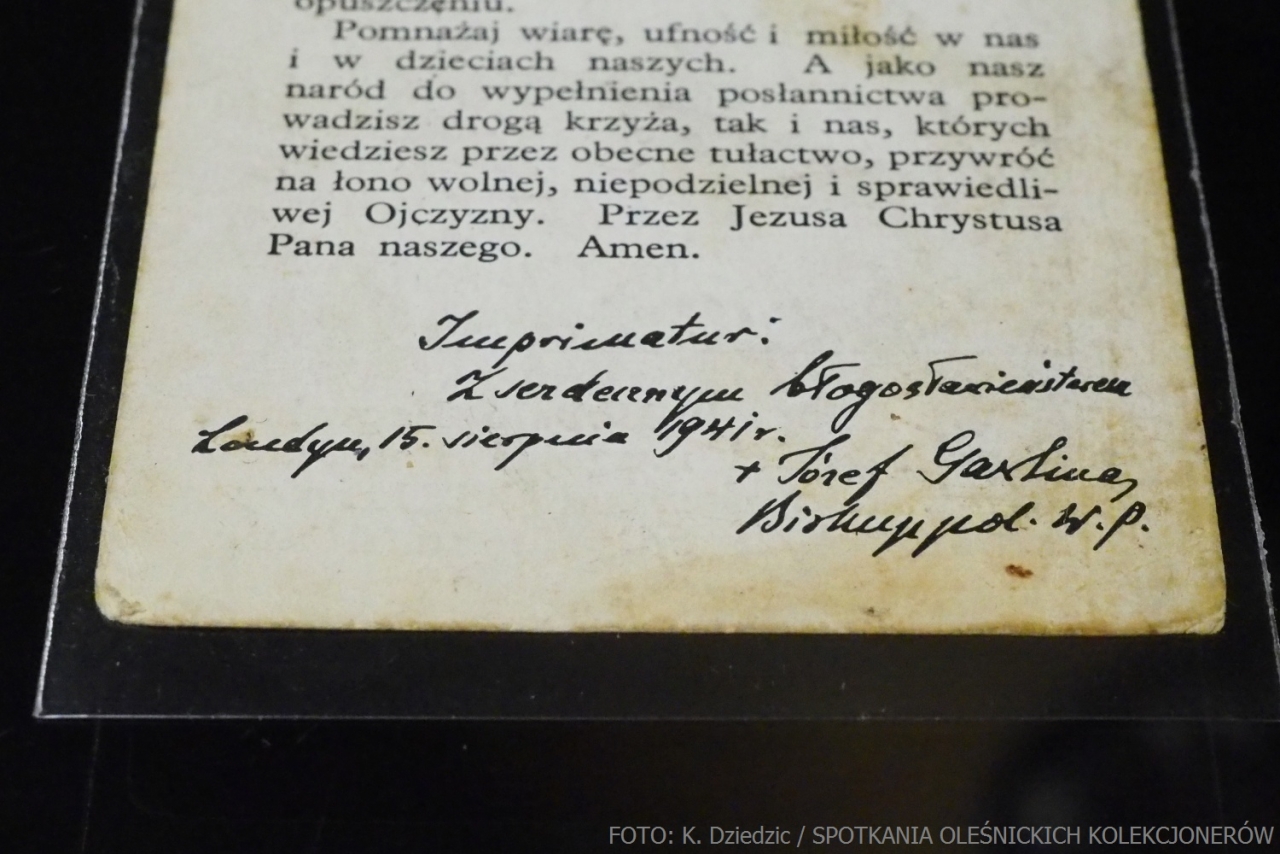 opuszczeniu.
Pomnażaj wiarę, ufność i miłość w nas
i w dzieciach naszych. A jako nasz
naród do wypełnienia posłannictwa pro-
wadzisz drogą krzyża, tak i nas, których
wiedziesz przez obecne tułactwo, przywróć
na łono wolnej, niepodzielnej i sprawiedli-
wej Ojczyzny. Przez Jezusa Chrystusa
Pana naszego. Amen.
Imprimatur:
Z serdecznym błogosławieństwem
Londyn, 15. sierpnia 1941 r.
+ Józef Gawlina,
Biskup pol. W. P.
FOTO: K. Dziedzic / SPOTKANIA OLEŚNICKICH KOLEKCJONERÓW